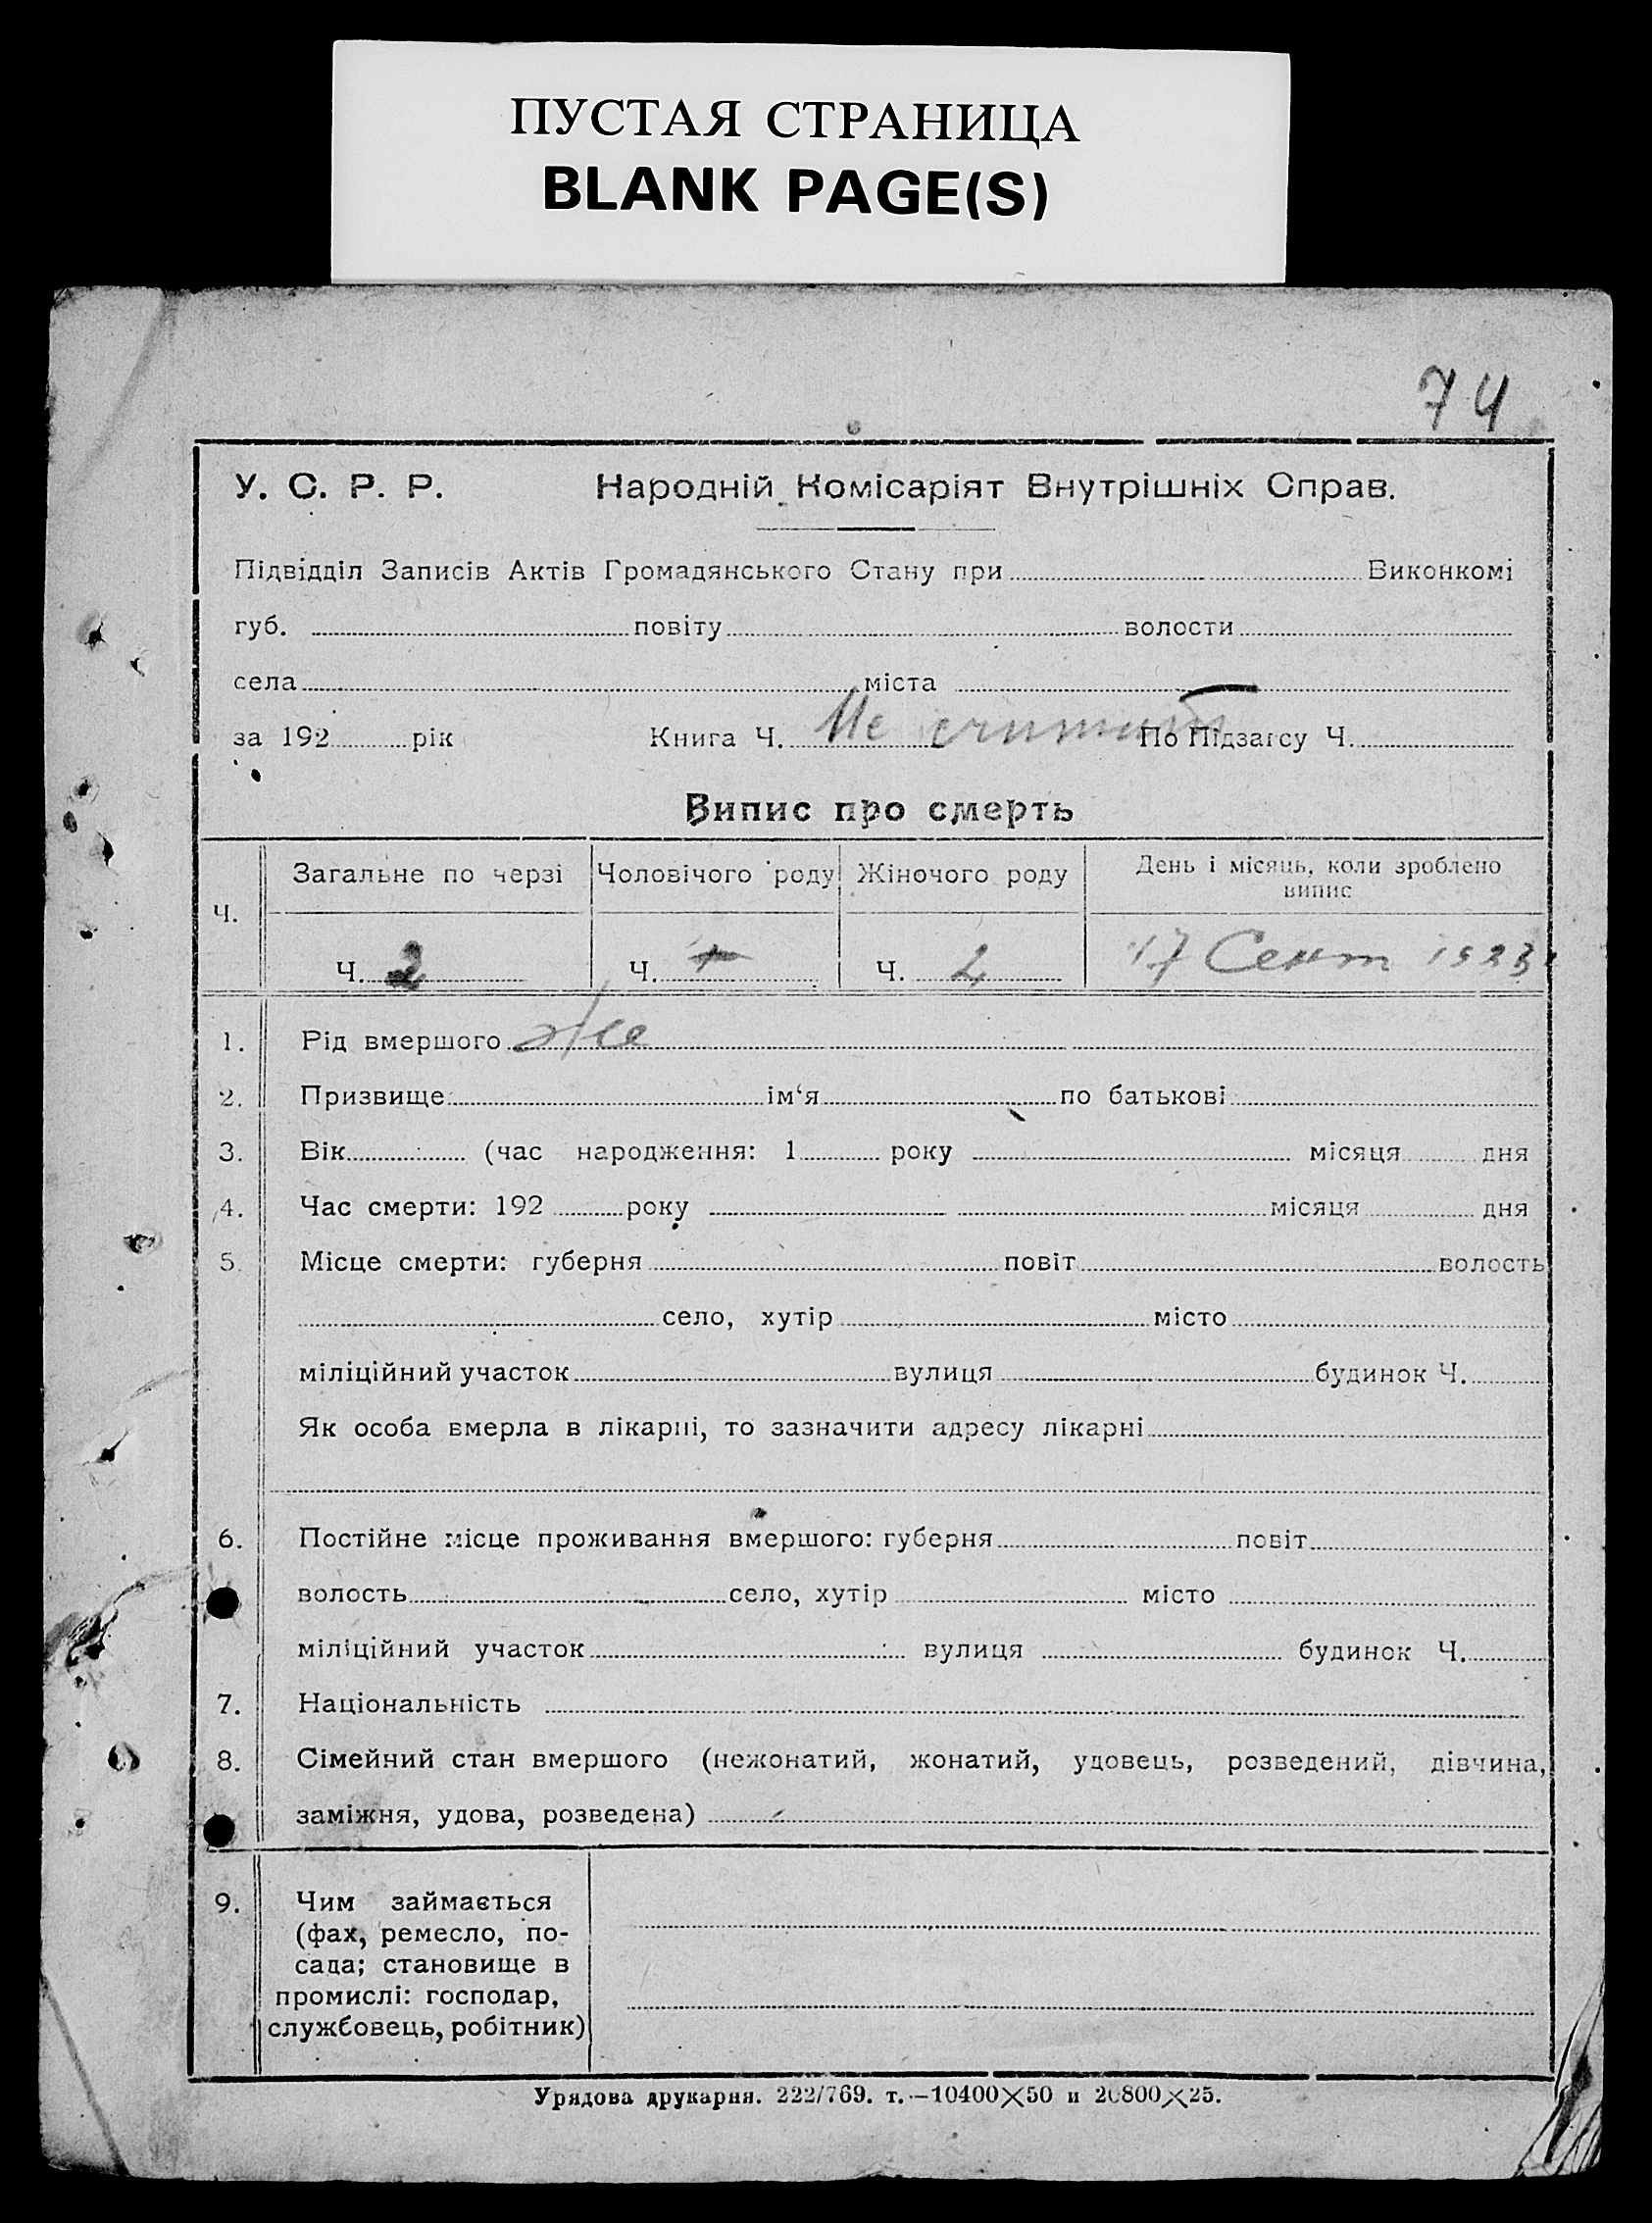 ПУСТАЯ СТРАНИЦА
BLANK PAGE(S)
74
У. С. Р. Р. Народній Комісаріят Внутрішніх Справ.
Підвідділ Записів Актів Громадянського Стану при Виконкомі
губ. повіту волости
села міста
за 192 рік Книга Ч. Не считат По Підзагсу Ч.
Випис про смерть
Ч. Загальне по черзі Чоловічого роду Жіночого роду День і місяць, коли зроблено випис
Ч. 2 Ч. Ч. 2 17 Сент 1923
1. Рід вмершого Же
2. Призвище ім‘я по батькові
3. Вік (час народження: 1 року місяця дня
4. Час смерти: 192 року місяця дня
5. Місце смерти: губерня повіт волость
село, хутір місто
міліційний участок вулиця будинок Ч.
Як особа вмерла в лікарні, то зазначити адресу лікарні
6. Постійне місце проживання вмершого: губерня повіт
волость село, хутір місто
міліційний участок вулиця будинок Ч.
7. Національність
8. Сімейний стан вмершого (нежонатий, жонатий, удовець, розведений, дівчина,
заміжня, удова, розведена)
9. Чим займається
(фах, ремесло, по-
сада; становище в
промислі: господар,
службовець, робітник)
Урядова друкарня. 222/769. т.—10400×50 и 20800×25.